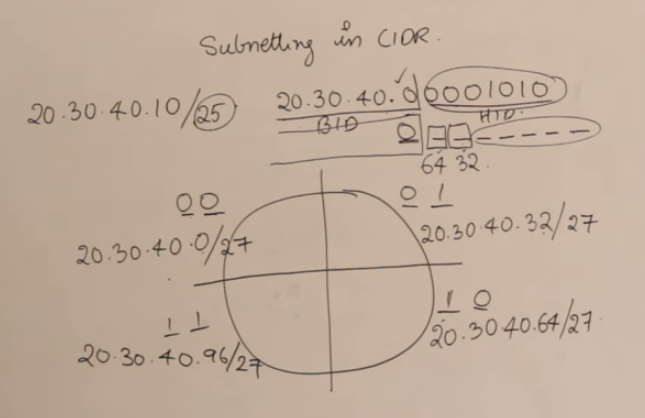 Subnetting in CIDR.
20.30.40.10/25
20.30.40.00001010
BID
HID.
0 - - - - - - -
64 32.
00
20.30.40.0/27
01
20.30.40.32/27
11
20.30.40.96/27
10
20.30.40.64/27.